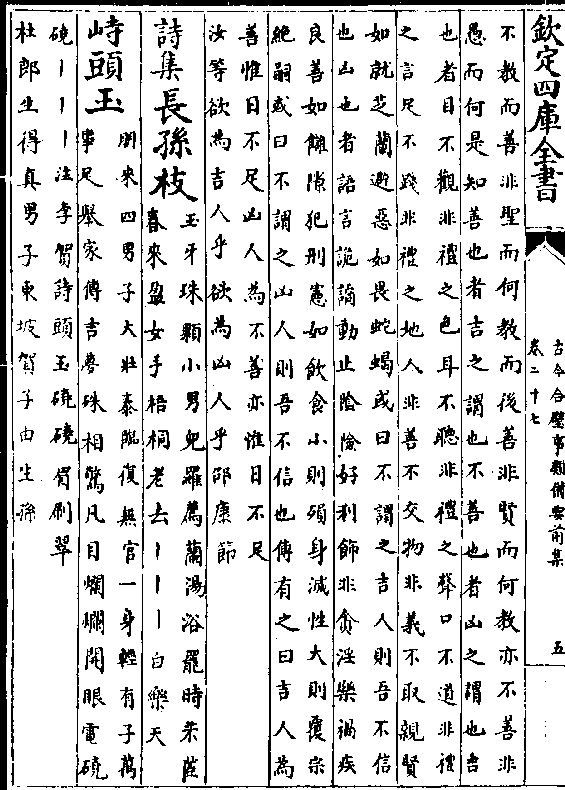 欽定四庫全書
古今合璧事類備要前集
卷二十七
五
不教而善非聖而何教而後善非賢而何教亦不善非
愚而何是知善也者吉之謂也不善也者凶之謂也吉
也者目不觀非禮之色耳不聽非禮之聲口不道非禮
之言足不踐非禮之地人非善不交物非義不取親賢
如就芝蘭避惡如畏蛇蝎或曰不謂之吉人則吾不信
也凶也者語言詭譎動止陰險好利飾非貪淫樂禍疾
良善如讎隙犯刑憲如飲食小則殞身滅性大則覆宗
絕嗣或曰不謂之凶人則吾不信也傳有之曰吉人為
善惟日不足凶人為不善亦惟日不足
汝等欲為吉人乎欲為凶人乎邵康節
詩集長孫枝
玉牙珠顆小男兒羅薦蘭湯浴罷時茱茰
春來盈女手梧桐老去丨丨丨白樂天
峙頭玉
朋來四男子大壯泰臨復無官一身輕有子萬
事足舉家傳吉夢珠相驚凡目爛爛開眼電磽
磽丨丨丨注李賀詩頭玉磽磽眉刷翠
杜郎生得真男子東坡賀子由生孫